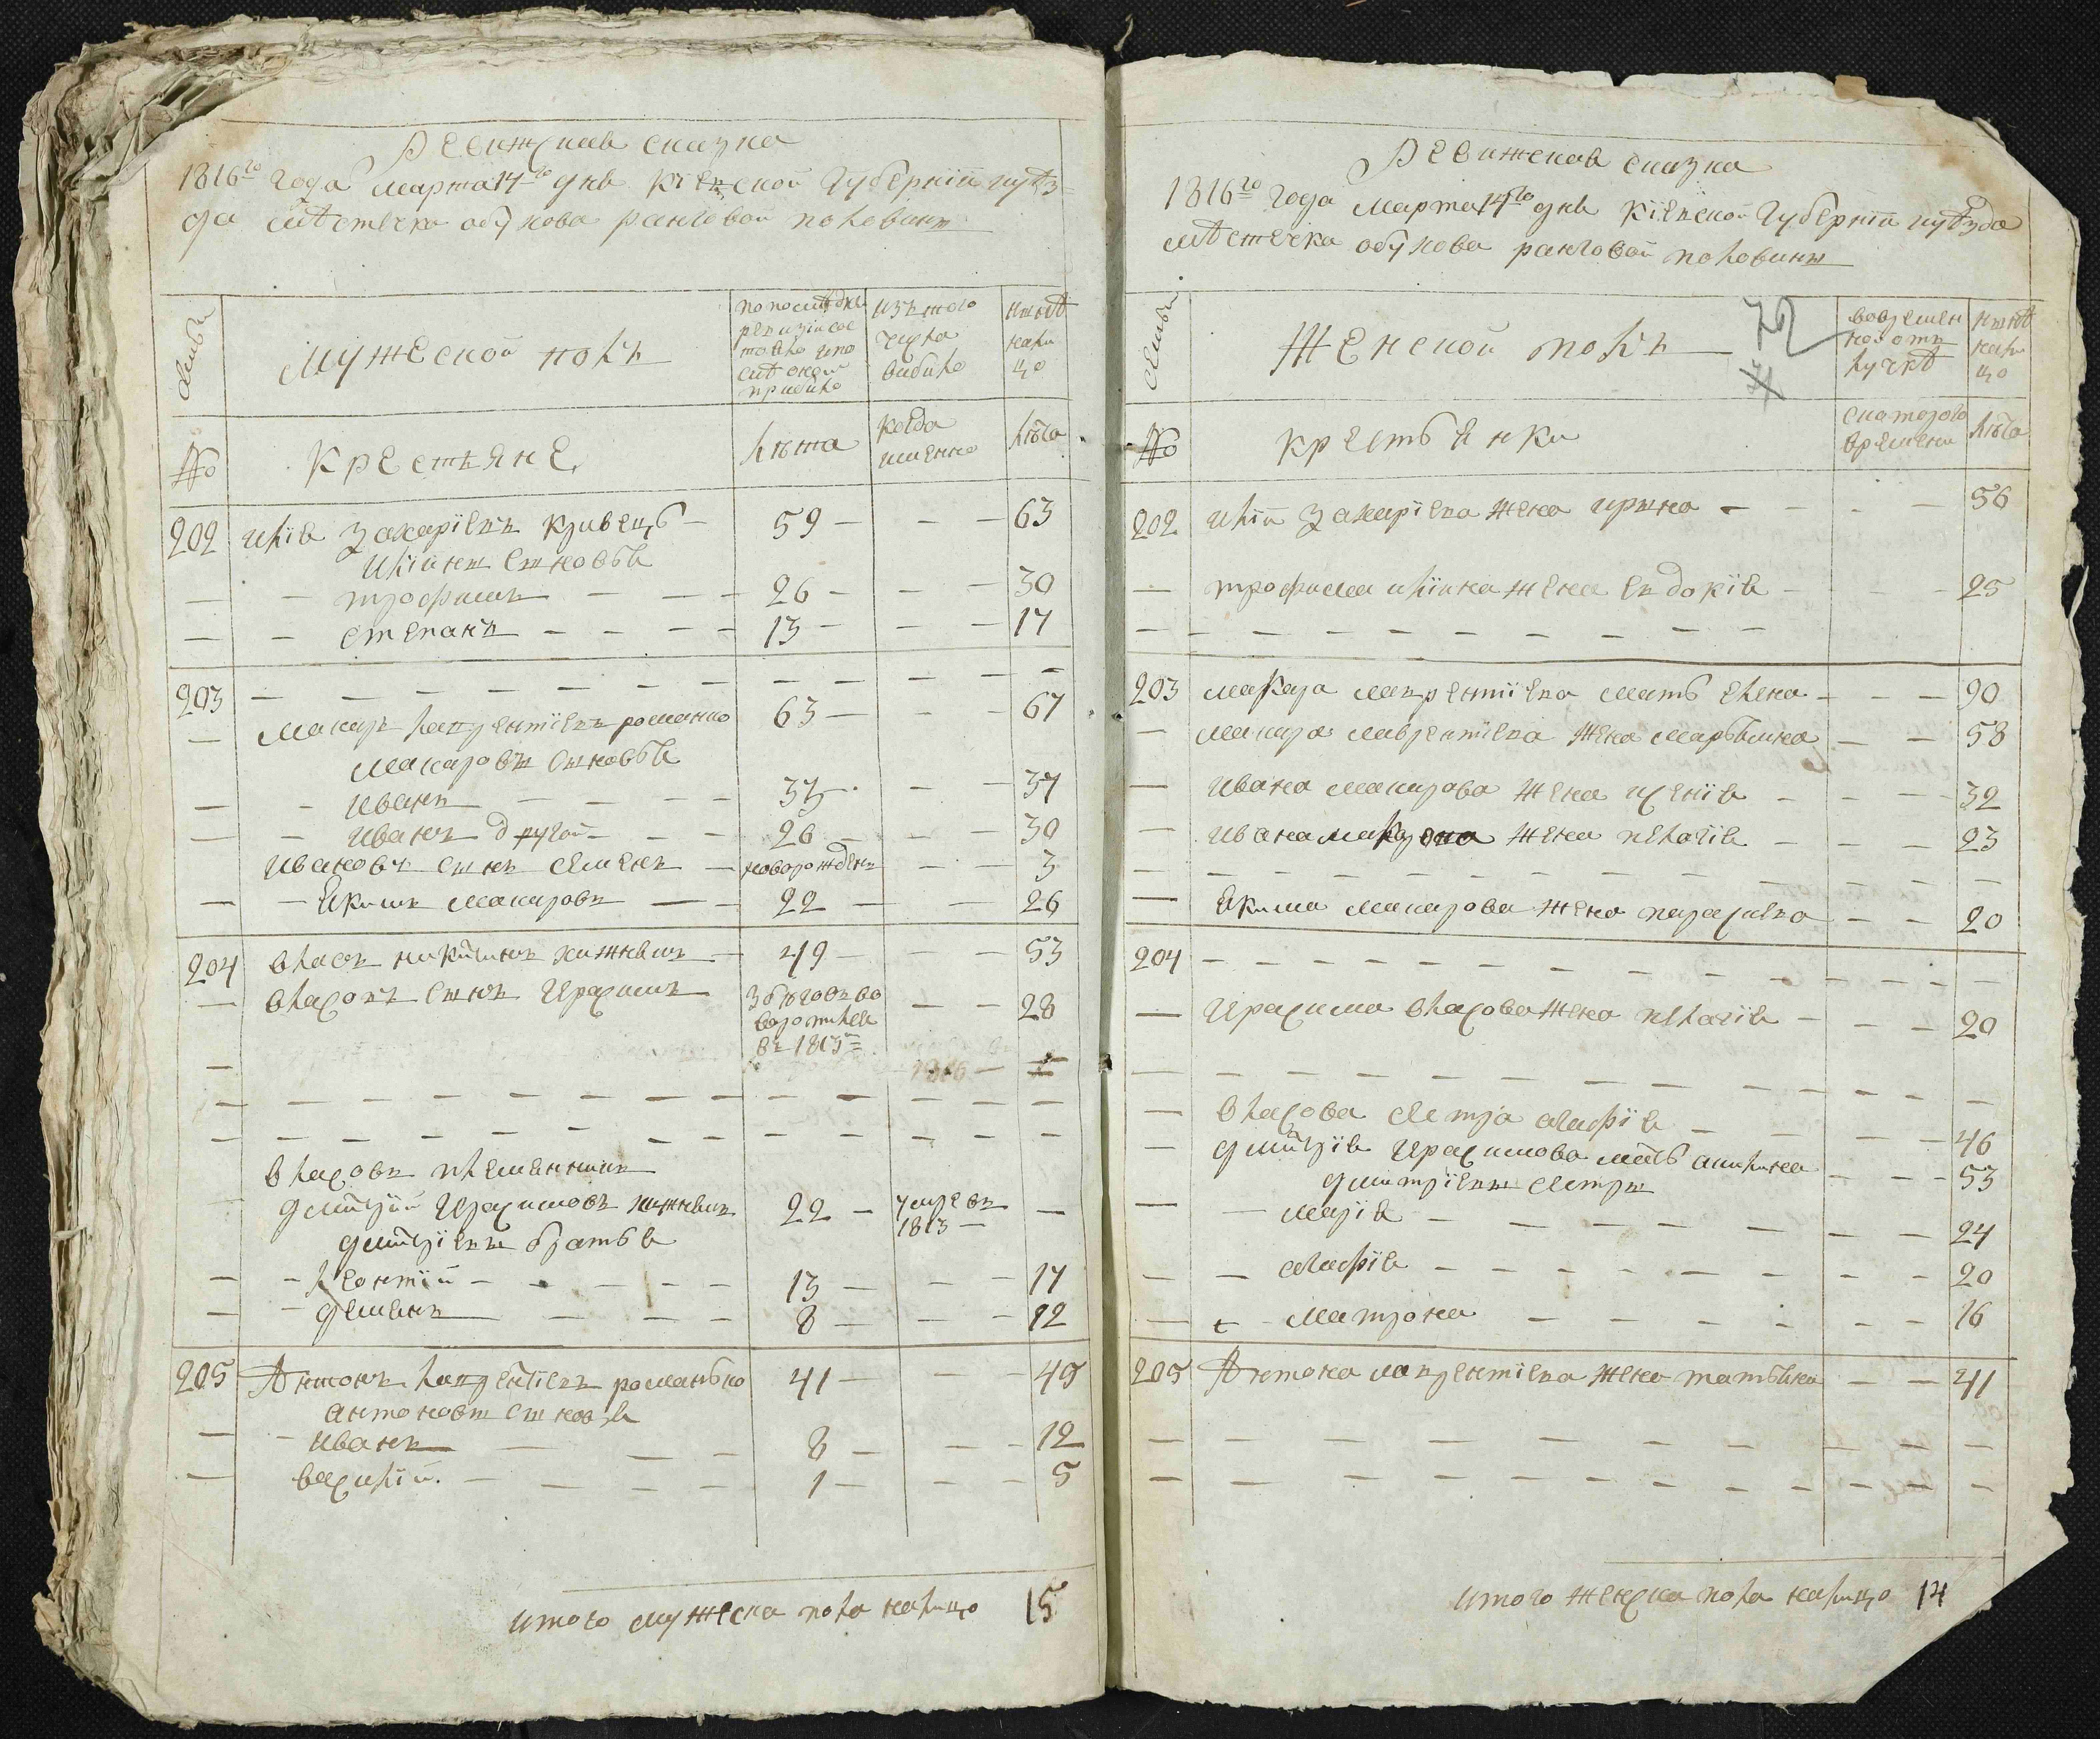 Ревижская сказка
1816го года марта 14го дня Кіевской Губерніи уѣз-
да мѣстечка обухова ранговой половины
Семьи
мужеской полъ
по последней ревизіи состояло и после оной прибыло
изъ того числа выбыло
нынѣ на лицо
№
крестьяне
лѣта
когда именно
лѣта
202 илія захаріевъ кривецъ — 59 — — — 63
иліины сыновья
— — трофимъ — — — 26 — — — 30
— — степанъ — — — — 13 — — — 17
203 — — — — — — — — — — — —
— макаръ лаврентіевъ романко 63 — — — 67
макаровы сыновья
— — иванъ — — — — 33 — — 37
— — иванъ другой — — — 26 — — — 30
ивановъ сынъ семенъ — новорожденъ — — 3
— — Якимъ макаровъ — — 22 — — 26
204 власъ никитинъ хижнякъ — 49 — — — 53
— власовъ сынъ Герасимъ
з бѣговъ во
воротился
въ 1813м
— — 28
—
1816 —
— — — — — — — — — — — —
— — — — — — — — — — — —
власовъ племенникъ
дмитрій Герасимовъ хижнякъ 22 — умре въ 1813 — —
дмитріевы братья
— — леонтій — — — — — 13 — — — 17
— — деменъ — — — 8 — — — 12
205 Антонъ лаврентіевъ романько 41 — — — 45
антоновы сыновья
— — иванъ — — — 8 — — — 12
— василій. — — — — 1 — — — 5
итого мужеска пола налицо 15
Ревижская сказка
1816го года марта 14го дня Кіевской Губерніи уѣзда
мѣстечка обухова ранговой половины
Семьи
Женской полъ
72
во временной отлучкѣ
нынѣ на лицо
№
крестьянки
с которого времени
лѣта
202 иліи захаріева жена ирына — — — — 56
— трофима иліина жена Евдокія — — — — 25
— — — — — — — — — —
203 макара лаврентіева мать елена — — — 90
— макара лаврентіева жена марьяна — — 58
— ивана макарова жена ксенія — — — 32
— ивана макарова жена пелагія — — — 23
— — — — — — — — — — — —
— Якима макарова жена параскева — — 20
204 — — — — — — — — — — — —
— Герасима власова жена пелагія — — — 20
— — — — — — — — — — — —
— власова сестра агафія — — — 46
— дмитрія Герасимова мать акилина — — — 53
дмитріевы сестры
— — марія — — — — — — — 24
— — агафія — — — — — — — — — 20
— — матрона — — — — — — — — 16
205 Антона лаврентіева жена татьяна — — 41
— — — — — — — — — — —
— — — — — — — — — — — —
итого женска пола налицо 14